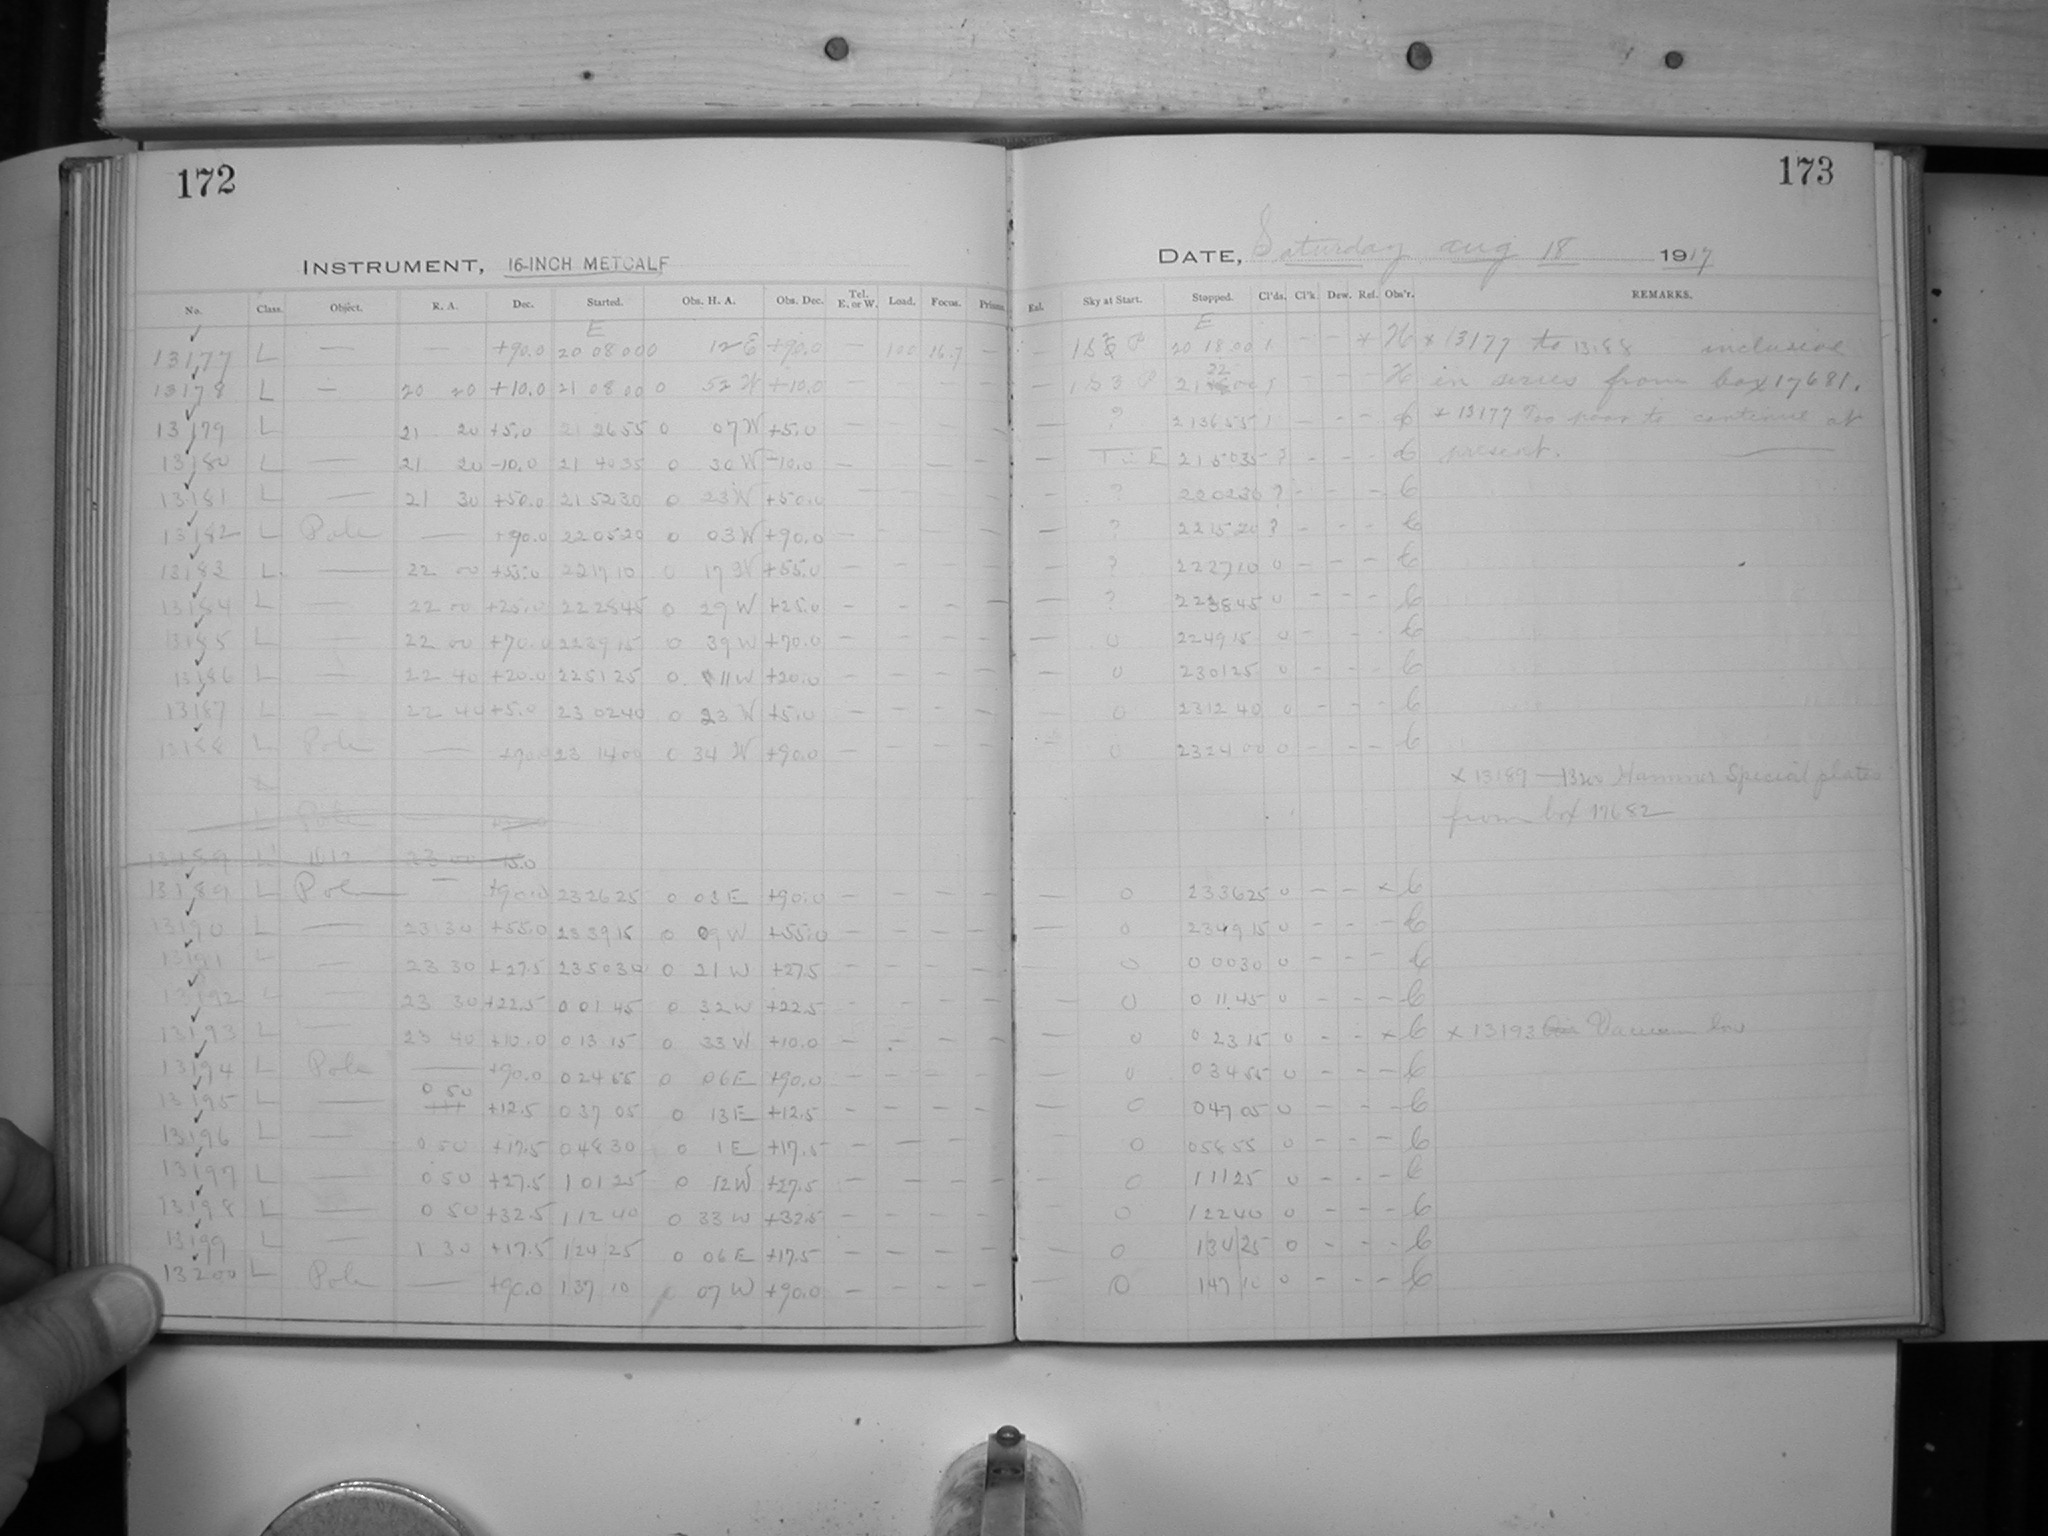 172
173
INSTRUMENT, 16-INCH METCALF
DATE, Saturday Aug 18 1917
No. Class. Object. R. A. Dec. Started. Obs. H. A. Obs. Dec. Tel. E. or W. Load. Focus. Prisms. Exl. Sky at Start. Stopped. Cl'ds. Cl'k. Dew. Rel. Obs'r. REMARKS.
E E
13177 L — — +90.0 20 08 00 0 12 E +90.0 — 100 16.7 — — 20 18 00 1 — — × H × 13177 to 13188 inclusive
13178 L — 20 20 +10.0 21 08 00 0 52 W +10.0 — — — — — H in series from box 17681.
13179 L 21 20 +5.0 21 26 55 0 07 W +5.0 — — — — — ? 21 36 55 1 — — — C × 13177 Too poor to continue at
13180 L — 21 20 -10.0 21 40 35 0 30 W -10.0 — — — — — 21 50 35 ? — — — C present.
13181 L — 21 30 +50.0 21 52 30 0 23 W +50.0 — — — — — ? 22 02 30 ? — — — C
13182 L Pole — +90.0 22 05 20 0 03 W +90.0 — — — — — ? 22 15 20 ? — — — C
13183 L. — 22 00 +55.0 22 17 10 0 17 W +55.0 — — — — — ? 22 27 10 0 — — — C
13184 L — 22 00 +25.0 22 28 45 0 29 W +25.0 — — — — — ? 22 38 45 0 — — — C
13185 L — 22 00 +70.0 22 39 15 0 39 W +70.0 — — — — — 0 22 49 15 0 — — — C
13186 L — 22 40 +20.0 22 51 25 0 11 W +20.0 — — — — — 0 23 01 25 0 — — — C
13187 L — 22 40 +5.0 23 02 40 0 23 W +5.0 — — — — — 0 23 12 40 0 — — — C
13188 L Pole — +90.0 23 14 00 0 34 W +90.0 — — — — — 0 23 24 00 0 — — — C
L × 13189 — 13200 Hammer Special plates
L Pole — from box 17682
13189 L 23 00 15.0
13189 L Pole — +90.0 23 26 25 0 03 E +90.0 — — — — — 0 23 36 25 0 — — × C
13190 L — 23 30 +55.0 23 39 15 0 09 W +55.0 — — — — — 0 23 49 15 0 — — — C
13191 L — 23 30 +27.5 23 50 30 0 21 W +27.5 — — — — — 0 0 00 30 0 — — — C
13192 L — 23 30 +22.5 0 01 45 0 32 W +22.5 — — — — — 0 0 11 45 0 — — — C
13193 L — 23 40 +10.0 0 13 15 0 33 W +10.0 — — — — — 0 0 23 15 0 — — × C × 13193 Vacuum low
13194 L Pole — +90.0 0 24 55 0 06 E +90.0 — — — — — 0 0 34 55 0 — — — C
13195 L — 0 50 +12.5 0 37 05 0 13 E +12.5 — — — — — 0 0 47 05 0 — — — C
13196 L — 0 50 +17.5 0 48 30 0 1 E +17.5 — — — — — 0 0 58 55 0 — — — C
13197 L — 0 50 +27.5 1 01 25 0 12 W +27.5 — — — — — 0 1 11 25 0 — — — C
13198 L — 0 50 +32.5 1 12 40 0 33 W +32.5 — — — — — 0 1 22 40 0 — — — C
13199 L — 1 30 +17.5 1 24 25 0 06 E +17.5 — — — — — 0 1 34 25 0 — — — C
13200 L Pole — +90.0 1 37 10 07 W +90.0 — — — — — 0 1 47 10 0 — — — C